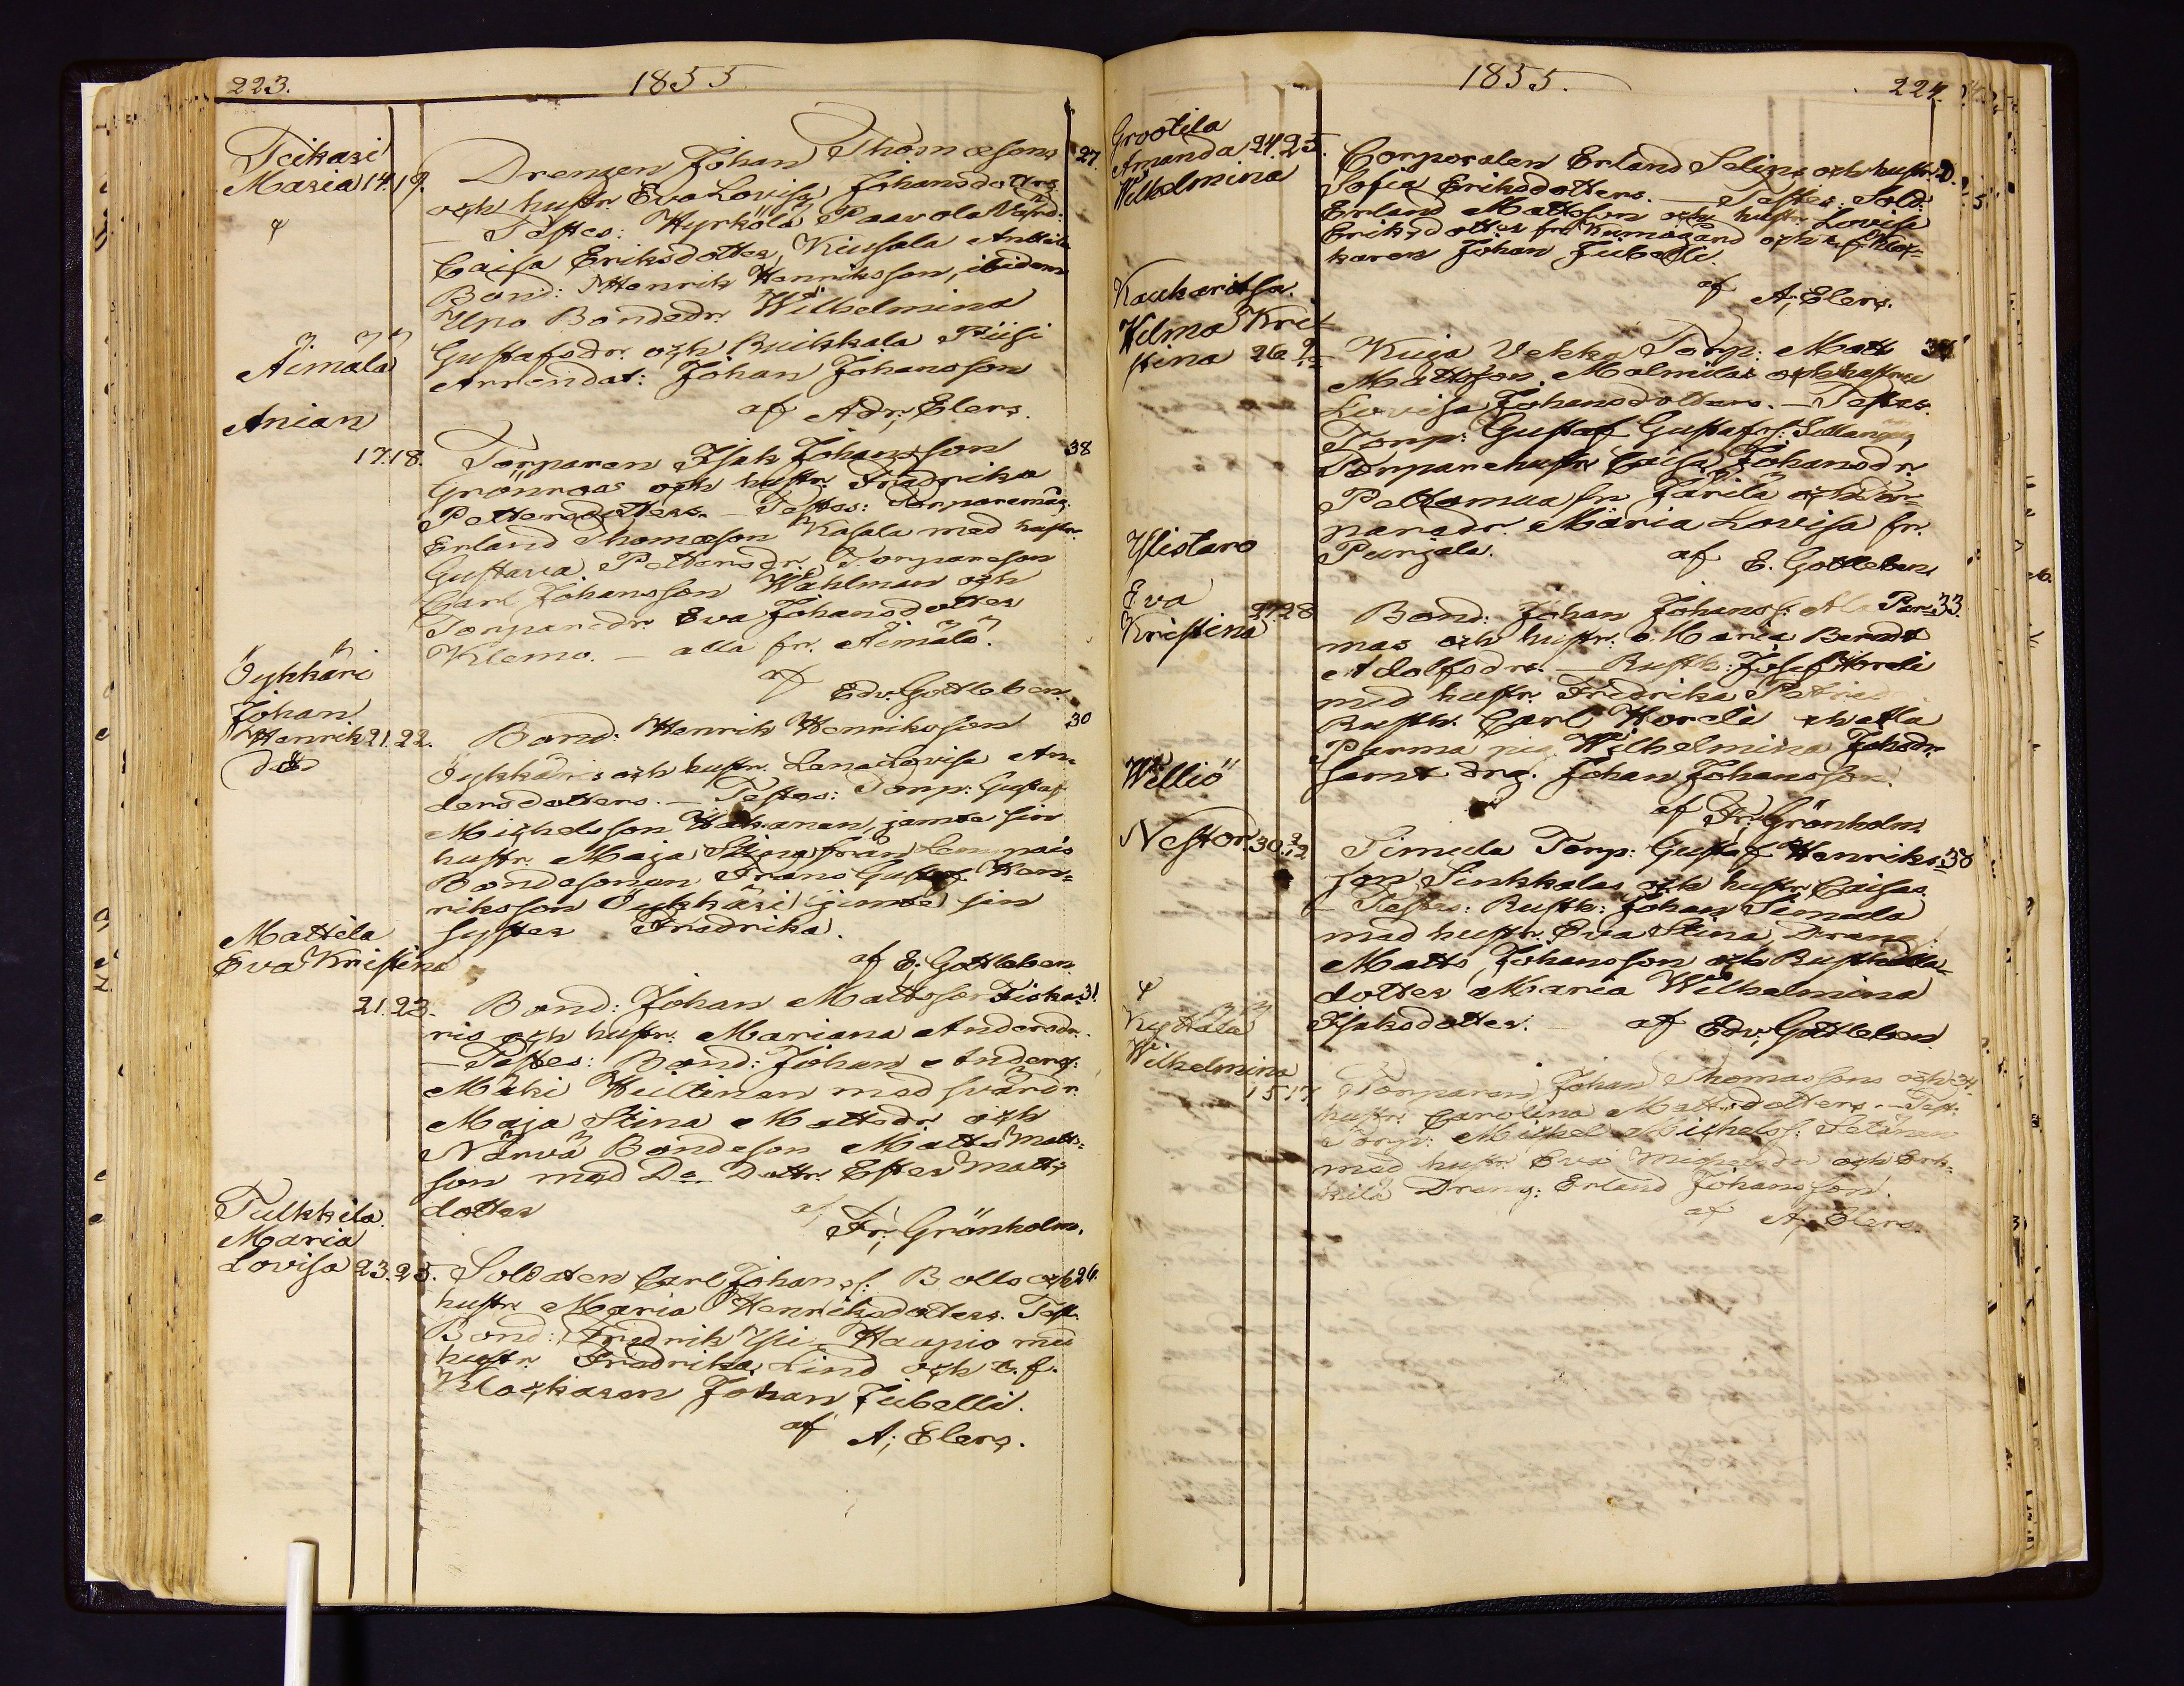 223. 1855
Teikari
Maria 14. 19. Drengen Johan Thomæsons 27.
och hustr. Eva Lovisa Johansdotters
φ — Testes: Hyrkölä Paavola Värd:
Caisa Eriksdotter, Kiusala Anttila
Bond: Henrik Henriksson, ibidem
Upo Bondedr. Wilhelmina
Gustafsdr. och Ruikkala Piisi
Äimälä Arrendat: Johan Johansson
af Adr; Elers.
Anian
17. 18. Torparen Isak Johansson 38
Grönroos och hustr. Fredrika
Pettersdotters. — Testes: Torparemåg:
Erland Thomæson Kasala med hustr.
Gustava Pettersdr. Torpareson
Carl Johansson Wahlman och
Torparedr. Eva Johansdotter
Klemo. — alla fr. Äimälä.
af Edv. Gottleben.
Öykkäri
Johan
Henrik 21. 22. Bond: Henrik Henriksson 30
död
Öykkäris och hustr. Lena Lovisa An-
dersdotters. — Testes: Torp: Gustaf
Michelsson Hakanen, jemte sin
hustr. Maja Stina från Lempois
Bondesonen Frans Gustaf Hen=
riksson Öykkäri jemte sin
syster Fredrika.
af E. Gottleben
Mattila
Eva Kristina
21. 23. Bond: Johan Mattsson Fiska- 31.
ris och hustr. Mariana Andersdr.
— Testes: Bond: Johan Anders:
Mäki Hultinen med svärdr.
Maja Stina Mattsdr. och
Närvä Bondeson Matts Matts-
son med D:o Dottr. Ester Matts
dotter
af Fr; Grönholm.
Tulkkila.
Maria
Lovisa 23. 25. Soldaten Carl Johanss: Bolls och 26.
hustr. Maria Henriksdotters. Test.
Bond: Fredrik Ylie Haapio med
hustr. Fredrika Lind och t. f.
Klockaren Johan Jubelli.
af A; Elers.
1855. 224.
Grootila
Amanda 24. 25.
Wilhelmina
Corporalen Erland Selins och hustr. D.
Sofia Eriksdotters. — Testes: Sold:
Erland Mattsson och hustr. Lovisa
Eriksdotter fr. Kumogård och t. f. Kloc-
karen Johan Jubelli.
af A; Elers.
Kaukaritsa.
Wilma Kri-
stina 26. Kuja Vekka Torp: Matt 34
Mattsson Malmilas och hustru
Lovisa Johansdotters. — Testes.
Torp: Gustaf Gustafss:
Torparehustr. Caisa Johansdr.
Peltomaa fr. Järilä och Tor-
paredr. Maria Lovisa fr.
Purjala.
af E. Gottleben
Ylistaro
Eva
Kristina 27. 28 Bond: Johan Johanss: Ala Par- 33.
mas och hustr. Maria Bernds
Adolfsdrs. — Rusth: Josef Horeli
med hustr. Fredrika
Rusth. Carl Horeli
Parma pig. Wilhelmina Johsdr.
samt drg. Johan Johansson.
af Fr; Grönholm
Williö
Nestor 30. 2/2 Simula Torp: Gustaf Henriks- 38
son Sinkkalas och hustr. Caisas.
— Testes: Rusth: Johan Simula
med hustr. Eva Stina, Dreng:
Matts Johansson och Rusthålla-
dotter Maria Wilhelmina
Isaksdotter. — af Edv. Gottleben
φ
Kyttälä
Wilhelmina
15. 17. Torparen Johan Thomassons och 34.
hustr. Carolina Mattsdotters. — Test:
Torp: Michel Michelss: Setänen
med hustr. Eva Michelsdr. och Erk-
kilä Dreng: Erland Johansson.
af A; Elers.